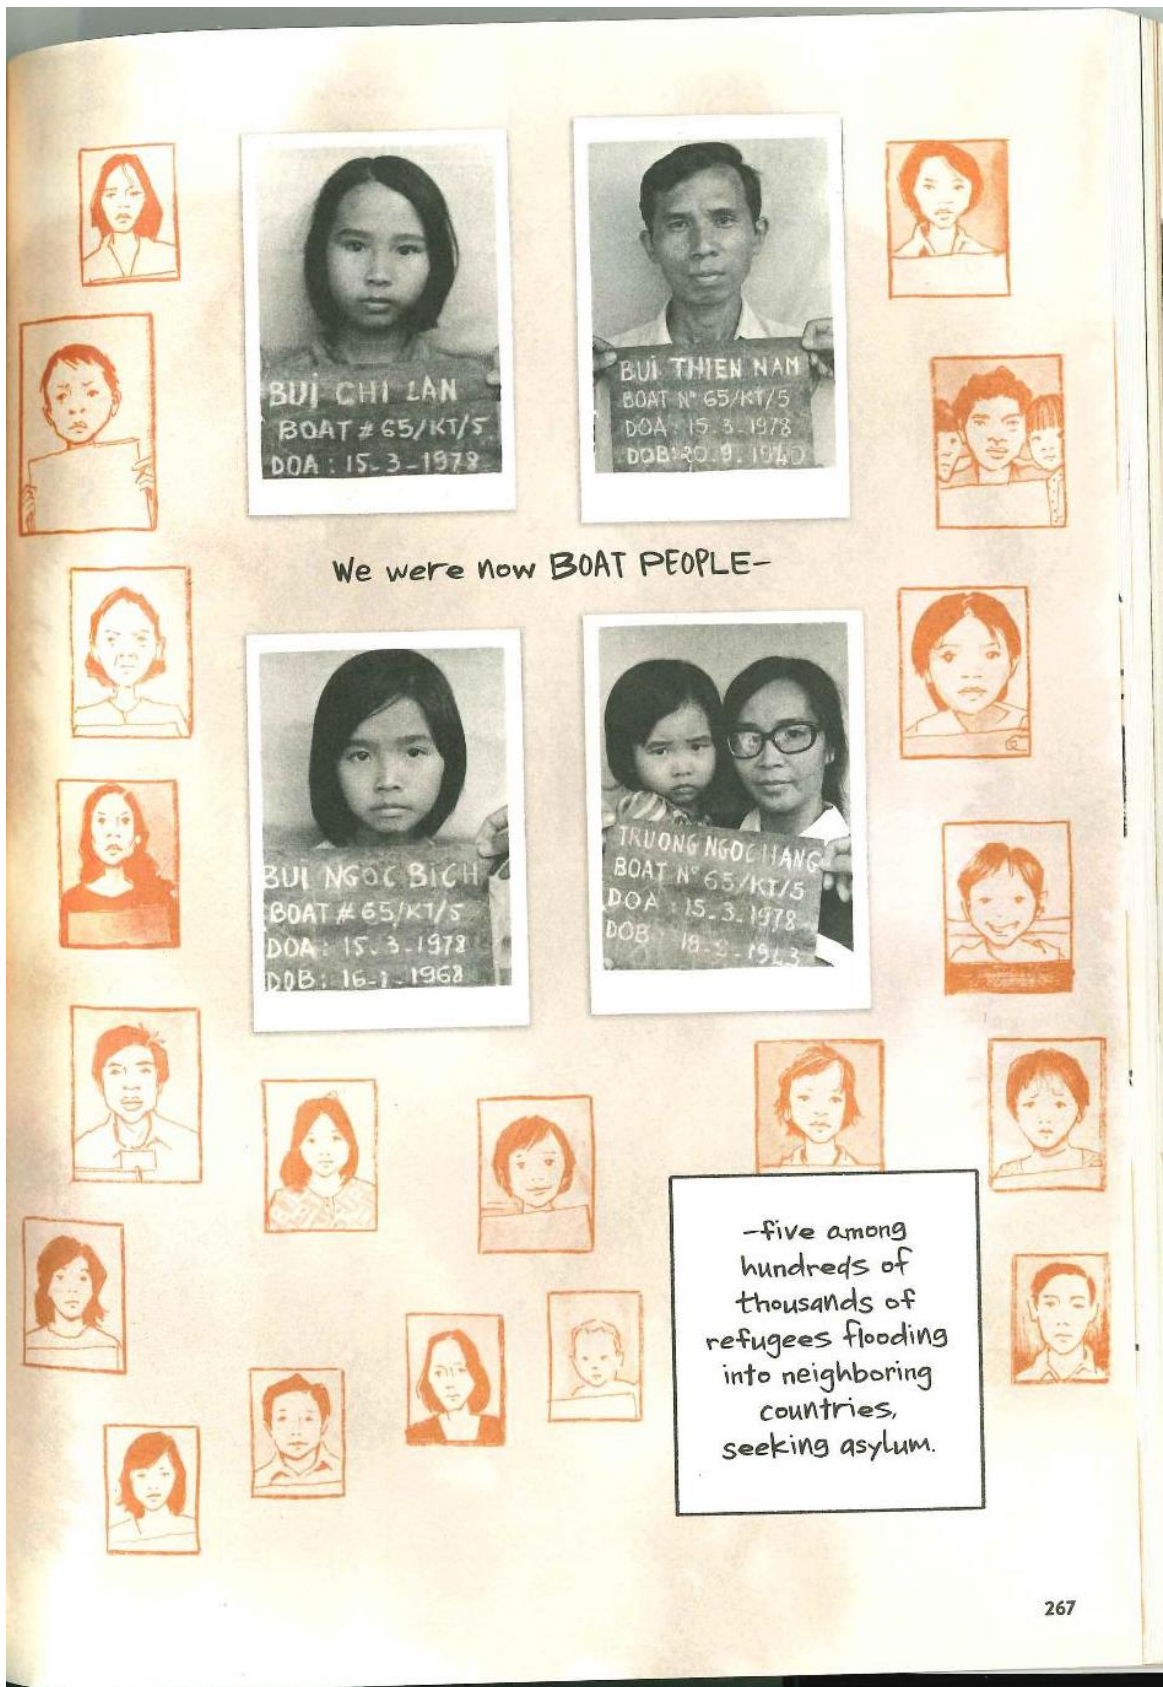 BUI CHI LAN
BOAT # 65/KT/5
DOA : 15-3-1978
BUI THIEN NAM
BOAT Nº 65/KT/5
DOA : 15.3.1978
DOB: 20.9.1940
We were now BOAT PEOPLE-
BUI NGOC BICH
BOAT # 65/KT/5
DOA : 15.3.1978
DOB : 16-1-1968
TRUONG NGOC HANG
BOAT Nº 65/KT/5
DOA : 15-3-1978
DOB
-five among
hundreds of
thousands of
refugees flooding
into neighboring
countries,
seeking asylum.
267